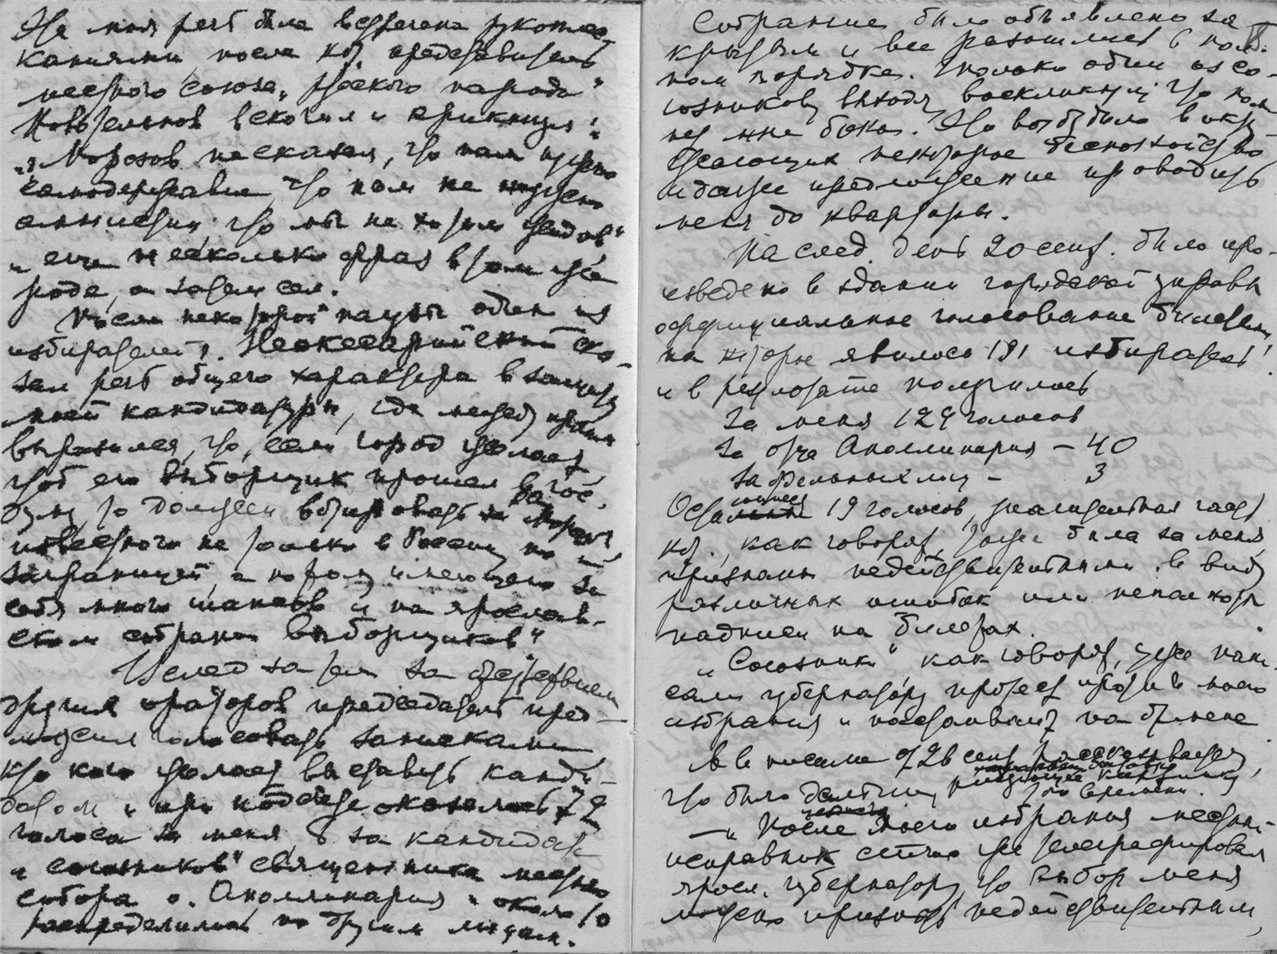 На моя речь была встречена рукопле-
сканиями, после кот. представитель
местного союза „русского народа"
Новосельнов вскочил и крикнул:
„Морозов не сказал, что нам нужно
самодержавие, что нам не нужно
амнистии, что мы не хотим жидов"
и еще несколько фраз в том же
роде, а затем сел.
После некоторой паузы один из
избирателей, Неокесарийский ска-
зал речь общего характера в защиту
моей кандидатуры, где между прочим
выразился, что, если город желает
чтоб его выборщик прошел в Гос.
Думу, то должен вотировать за Морозова
известного не только в России, но и
заграницей, а потому имеющего за
себя много шансов и на ярослав-
ском собрании выборщиков".
Вслед затем за отсутствием
других ораторов председатель пред-
ложил голосовать записками
кто кого желает выставить канди-
датом и при подсчете оказалось 72
голоса за меня, 8 за кандидата
„союзников" священника местного
собора о. Аполлинария и около 10
распределились по другим лицам.
Собрание было объявлено за-
крытым и все разошлись в пол-
ном порядке. Только один из со-
юзников, выходя воскликнул что
мне бока. Но это было в окру-
жающих некоторое беспокойство
и даже предложение проводить
меня до квартиры.
На след. день 20 сент. было про-
изведено в здании городской управы
официальное голосование билетами,
на которое явилось 191 избиратель
и в результате получилось
За меня 129 голосов
за отца Аполлинария – 40
за отдельных лиц – 3
Остальные 19 голосов, значительная часть
кот., как говорят, тоже была за меня,
признаны недействительными в виду
различных ошибок или неполноты
надписи на билетах.
„Союзники" как говорят, уже напи-
сали губернатору протест против моего
избрания и настаивают на отмене
А в письме от 26 сент. рассказывается,
что было дальше
— „После моего избрания местный
исправник сейчас же телеграфировал
яросл. губернатору, что выбор меня
можно признать недействительным,